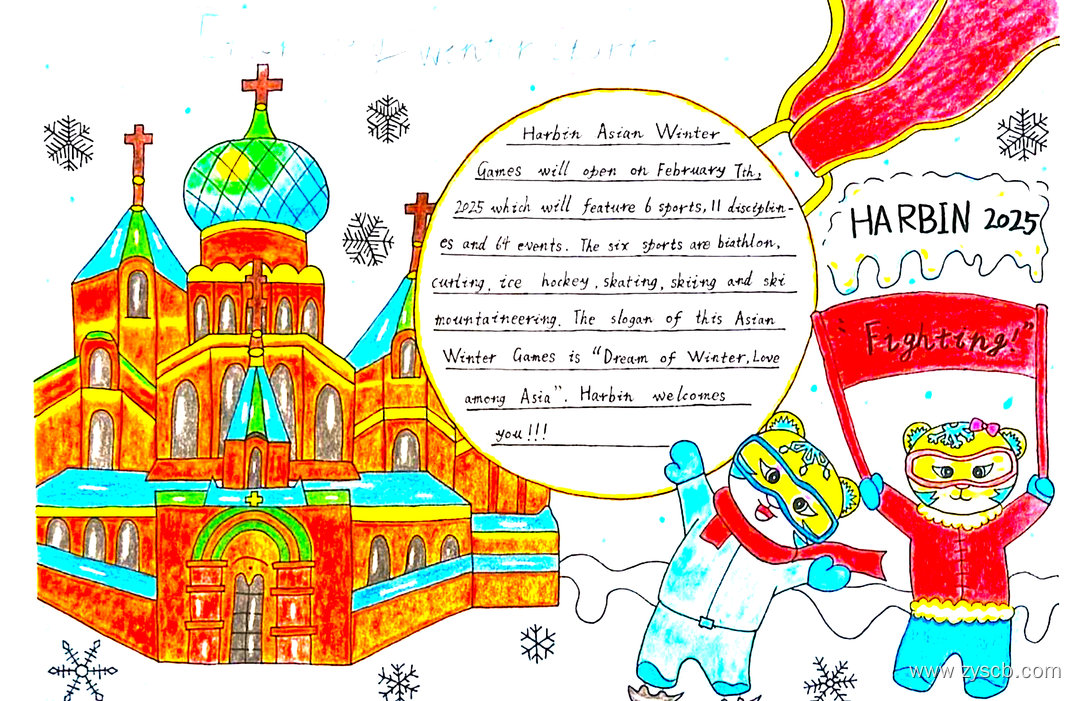 winter
Harbin Asian Winter
Games will open on February 7th,
2025 which will feature 6 sports, 11 disciplin-
es and 64 events. The six sports are biathlon,
curling, ice hockey, skating, skiing and ski
mountaineering. The slogan of this Asian
Winter Games is "Dream of Winter, Love
among Asia". Harbin welcomes
you!!!
HARBIN 2025
"Fighting!"
www.zyscb.com